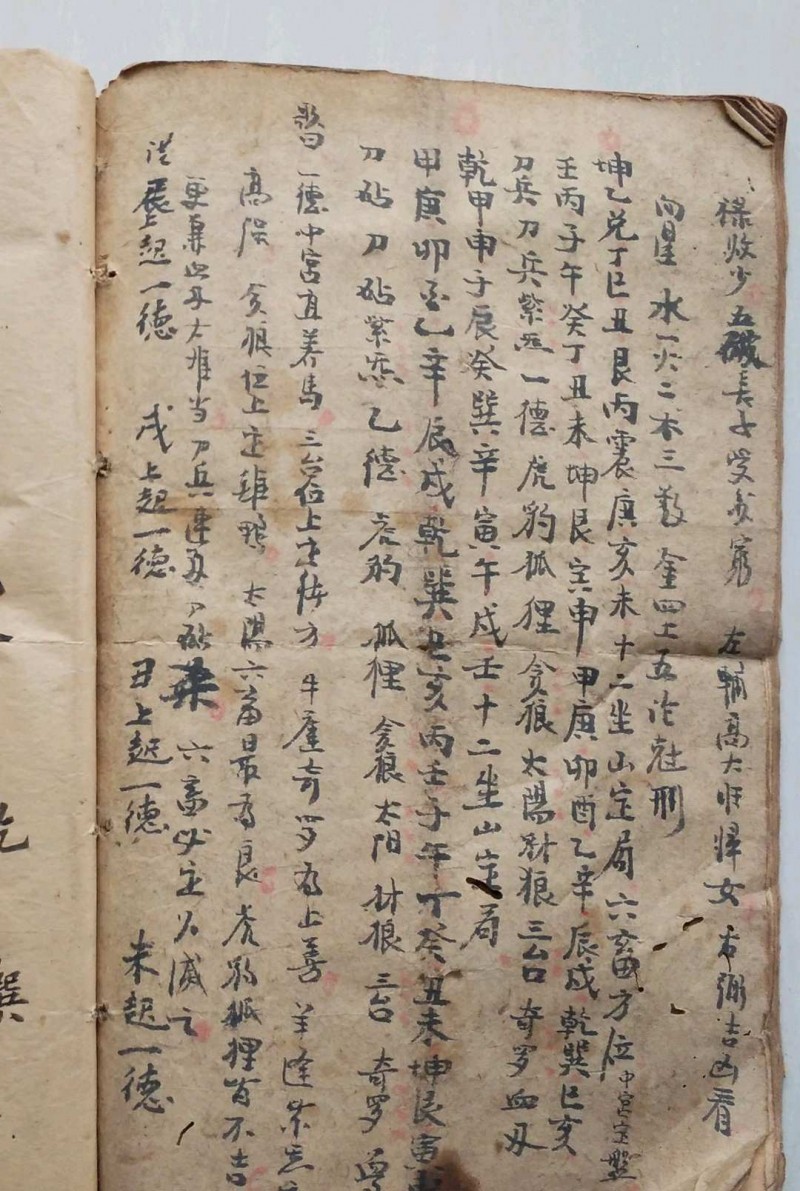 祿敗少五磯長子受貧窮 左輔高大旺婦女 右弼吉凶看
向星 水一火二木三 金四土五论魁刑
坤乙兑丁巳丑艮丙震庚亥未十二坐山定局六畜方位中宫定盤
壬丙子午癸丁丑未坤艮寅申甲庚卯酉乙辛辰戍乾巽巳亥
刀兵刀兵紫炁一德虎豹狐狸贪狼太陽財狼三台奇罗血刃
乾甲申子辰癸巽辛寅午戍壬十二坐山定局
甲庚卯酉乙辛辰戍乾巽巳亥丙壬子午丁癸丑未坤艮寅
刀砧刀砧紫炁乙德虎豹狐狸贪狼太阳財狼三台奇罗
一德中宫宜养馬 三台位上方 牛奇罗為上善 羊逢紫炁
高 贪狼位上定雞鴨 太陽六畜最為良虎豹狐狸皆不吉
更血刃大难当刀兵六畜必定火滅之
上起一德 戍上起一德 丑上起一德 未起一德
乾
巽